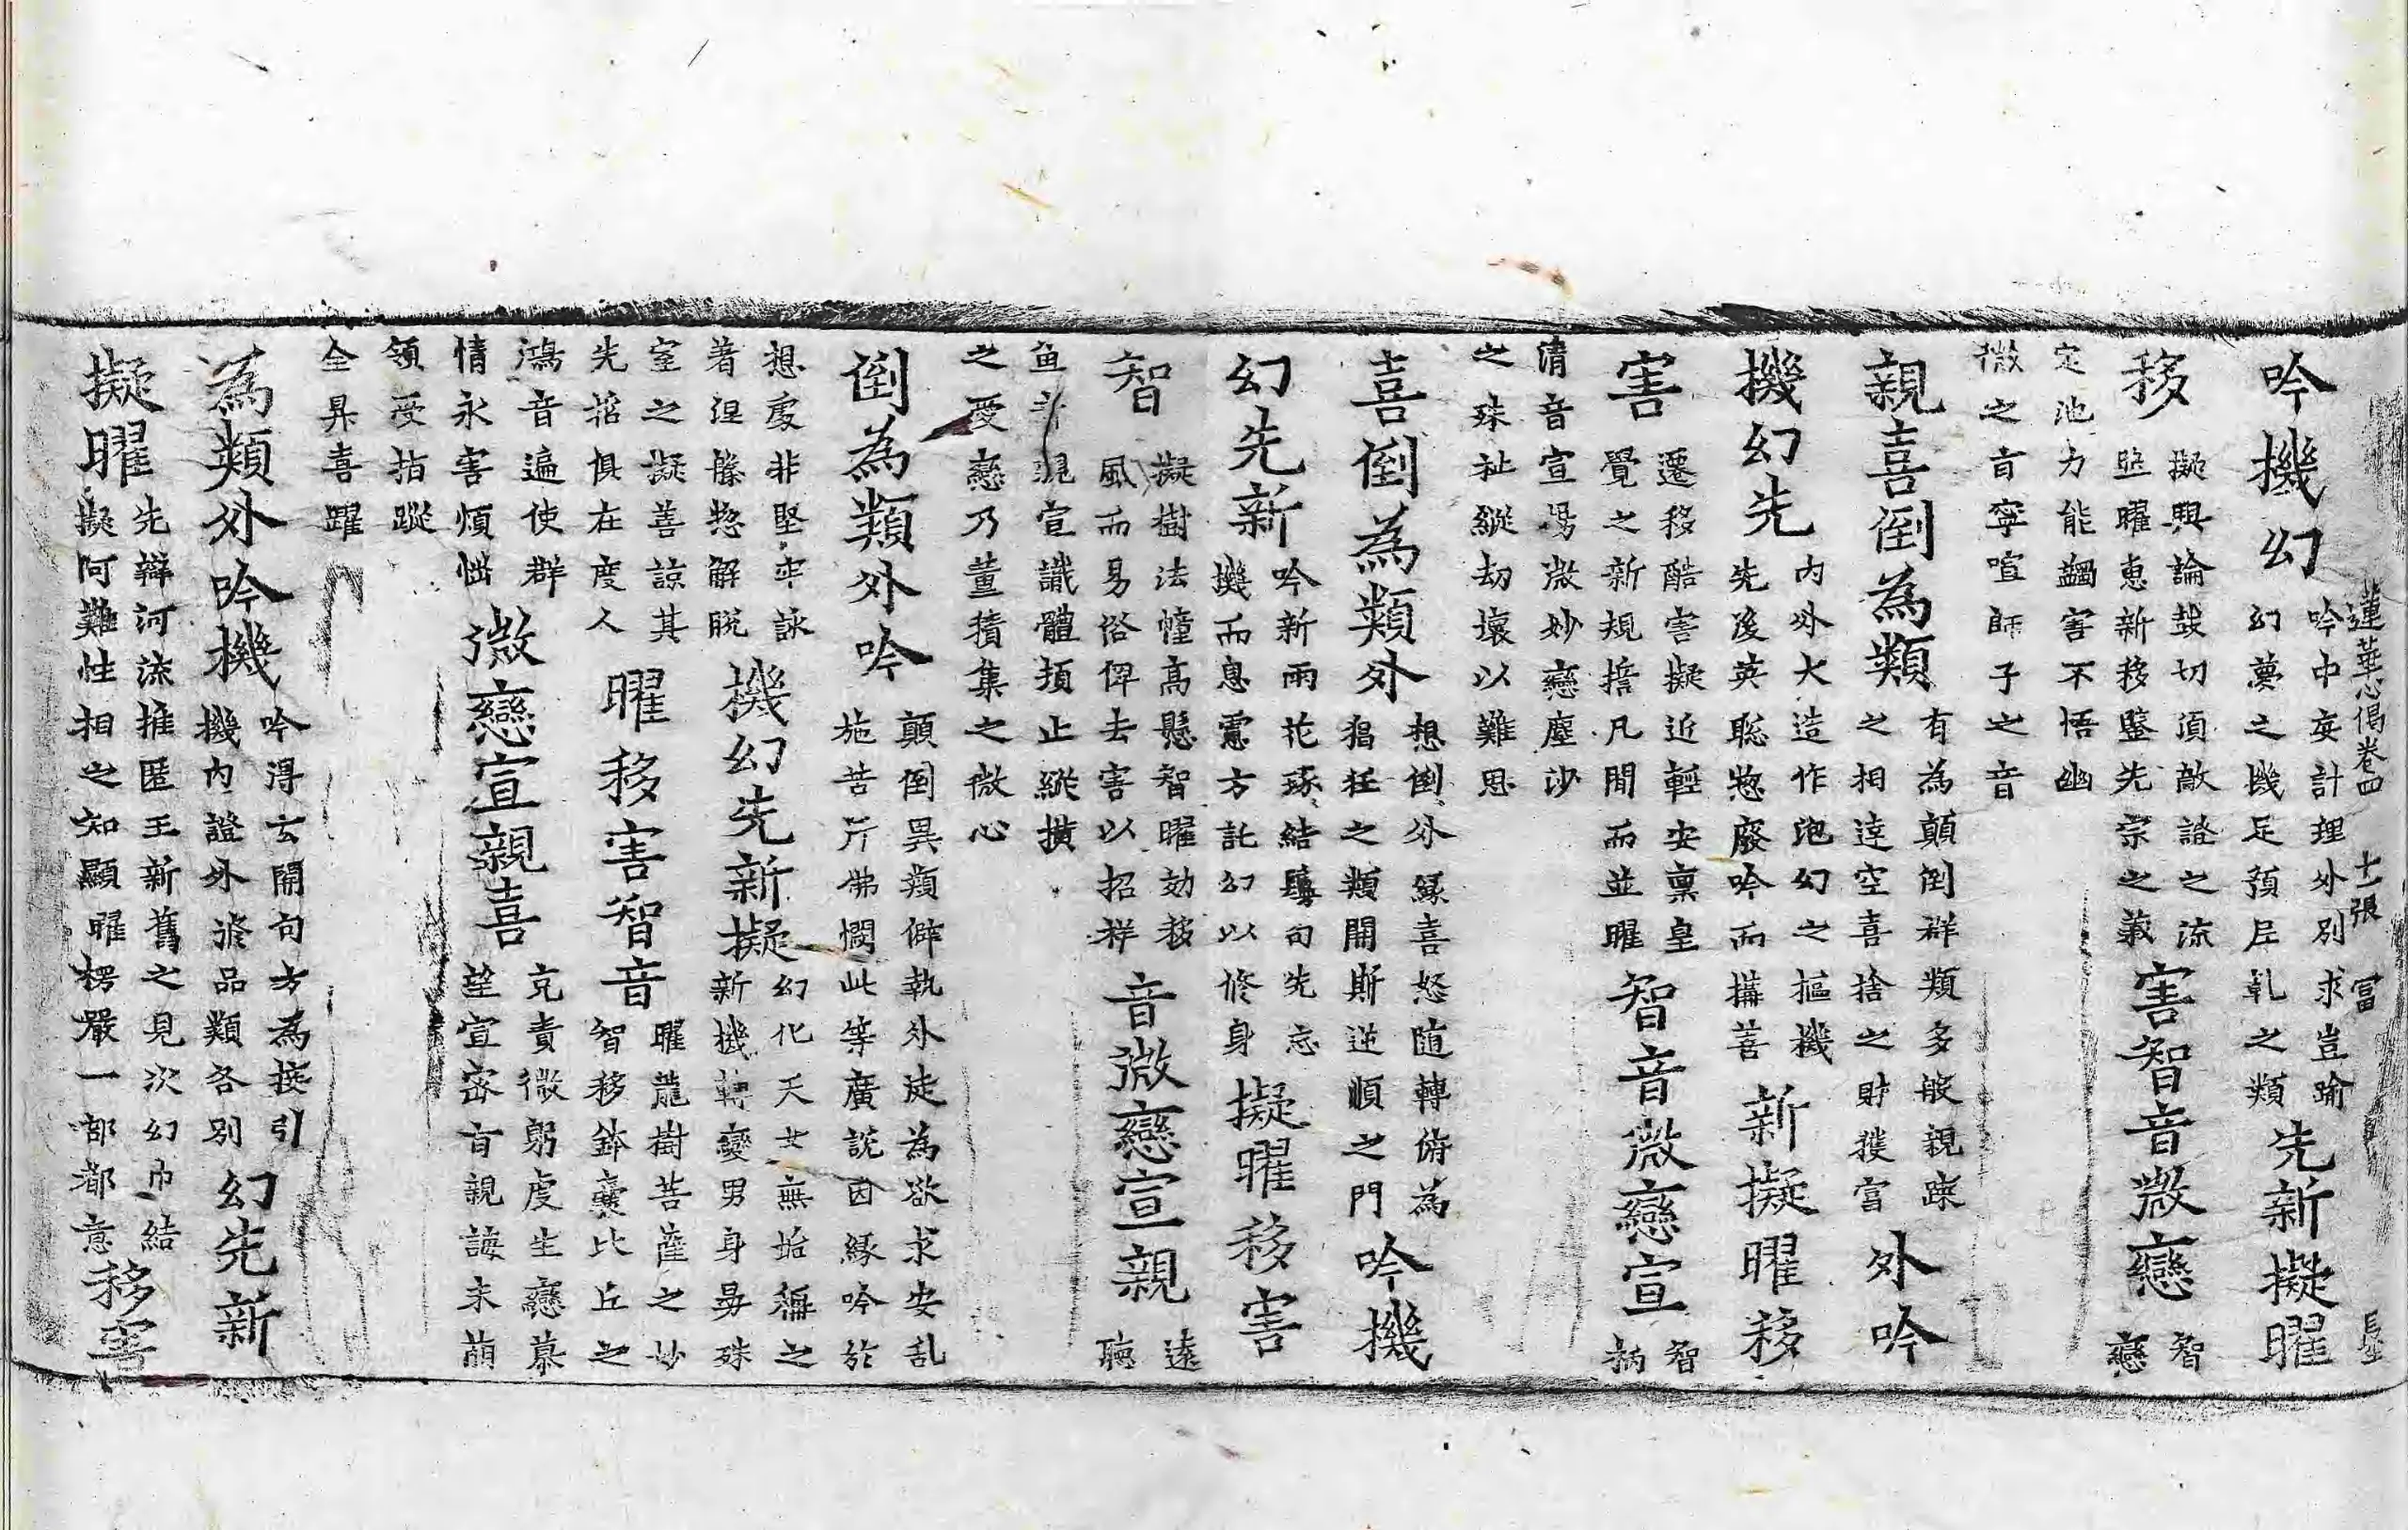 蓮華心偈卷四 十一張 富
吟機幻
吟中妄計理外別求豈踰
幻夢之機足預丘軋之類
先新擬曜
移
擬興論鼓切頂敵證之流
照曜惠新移鑒先宗之義
害智音微戀
智
戀
定池力能蠲害不悟幽
微之旨寧喧師子之音
親喜倒為類
有為顛倒群類多般親疎
之相違空喜捨之財獲富
外吟
機幻先
內外大造作泡幻之摳機
先後英聡惣廢吟而搆善
新擬曜移
害
遷移酷害擬近輕安稟皇
覺之新規擔凡間而並曜
智音微戀宣
智
柄
清音宣暢微妙戀塵沙
之殊祉縱劫壞以難思
喜倒為類外
想倒外緣喜怒随轉俯為
猖狂之類開斯逆順之門
吟機
幻先新
吟新雨花琢結句先忘
機而息慮方託幻以修身
擬曜移害
智
擬樹法幢高懸智曜効移
風而易俗俾去害以招祥
音微戀宣親
遠
聴
宣識體須止縱撗
之愛戀乃薫積集之微心
倒為類外吟
顛倒異類僻執外徒為欲求安乱
施苦斤佛憫此等廣說因緣吟於
想處非堅牢詠
著涅槃惣解脫
機幻先新擬
幻化天女無始稱之
新機轉變男身易殊
室之擬善諒其
先哲俱在度人
曜移害智音
曜龍樹菩薩之妙
智移鉢囊比丘之
鴻音遍使群
情永害煩惱
微戀宣親喜
克責微躬虔生戀慕
莚宣密旨親誨未萠
領受指蹤
全昇喜躍
為類外吟機
吟淂玄開句方為接引
機內證外俢品類各別
幻先新
擬曜
先辯河流推匿王新舊之見次幻巾結
擬阿難性相之知顯曜楞嚴一部都意
移害